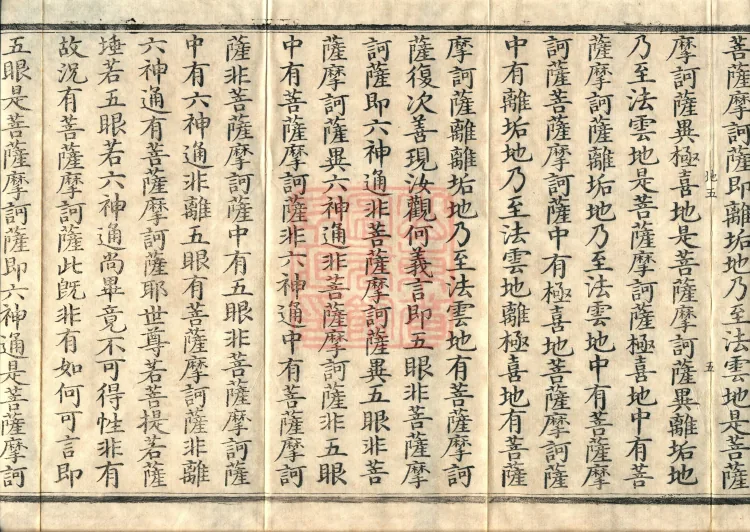 菩薩摩訶薩即離垢地乃至法雲地是菩薩
摩訶薩異極喜地是菩薩摩訶薩異離垢地
五
乃至法雲地是菩薩摩訶薩極喜地中有菩
薩摩訶薩離垢地乃至法雲地中有菩薩摩
訶薩菩薩摩訶薩中有極喜地菩薩摩訶薩
中有離垢地乃至法雲地離極喜地有菩薩
摩訶薩離離垢地乃至法雲地有菩薩摩訶
薩復次善現汝觀何義言即五眼非菩薩摩
訶薩即六神通非菩薩摩訶薩異五眼非菩
薩摩訶薩異六神通非菩薩摩訶薩非五眼
中有菩薩摩訶薩非六神通中有菩薩摩訶
薩非菩薩摩訶薩中有五眼非菩薩摩訶薩
中有六神通非離五眼有菩薩摩訶薩非離
六神通有菩薩摩訶薩耶世尊若菩提若薩
埵若五眼若六神通尚畢竟不可得性非有
故況有菩薩摩訶薩此既非有如何可言即
五眼是菩薩摩訶薩即六神通是菩薩摩訶